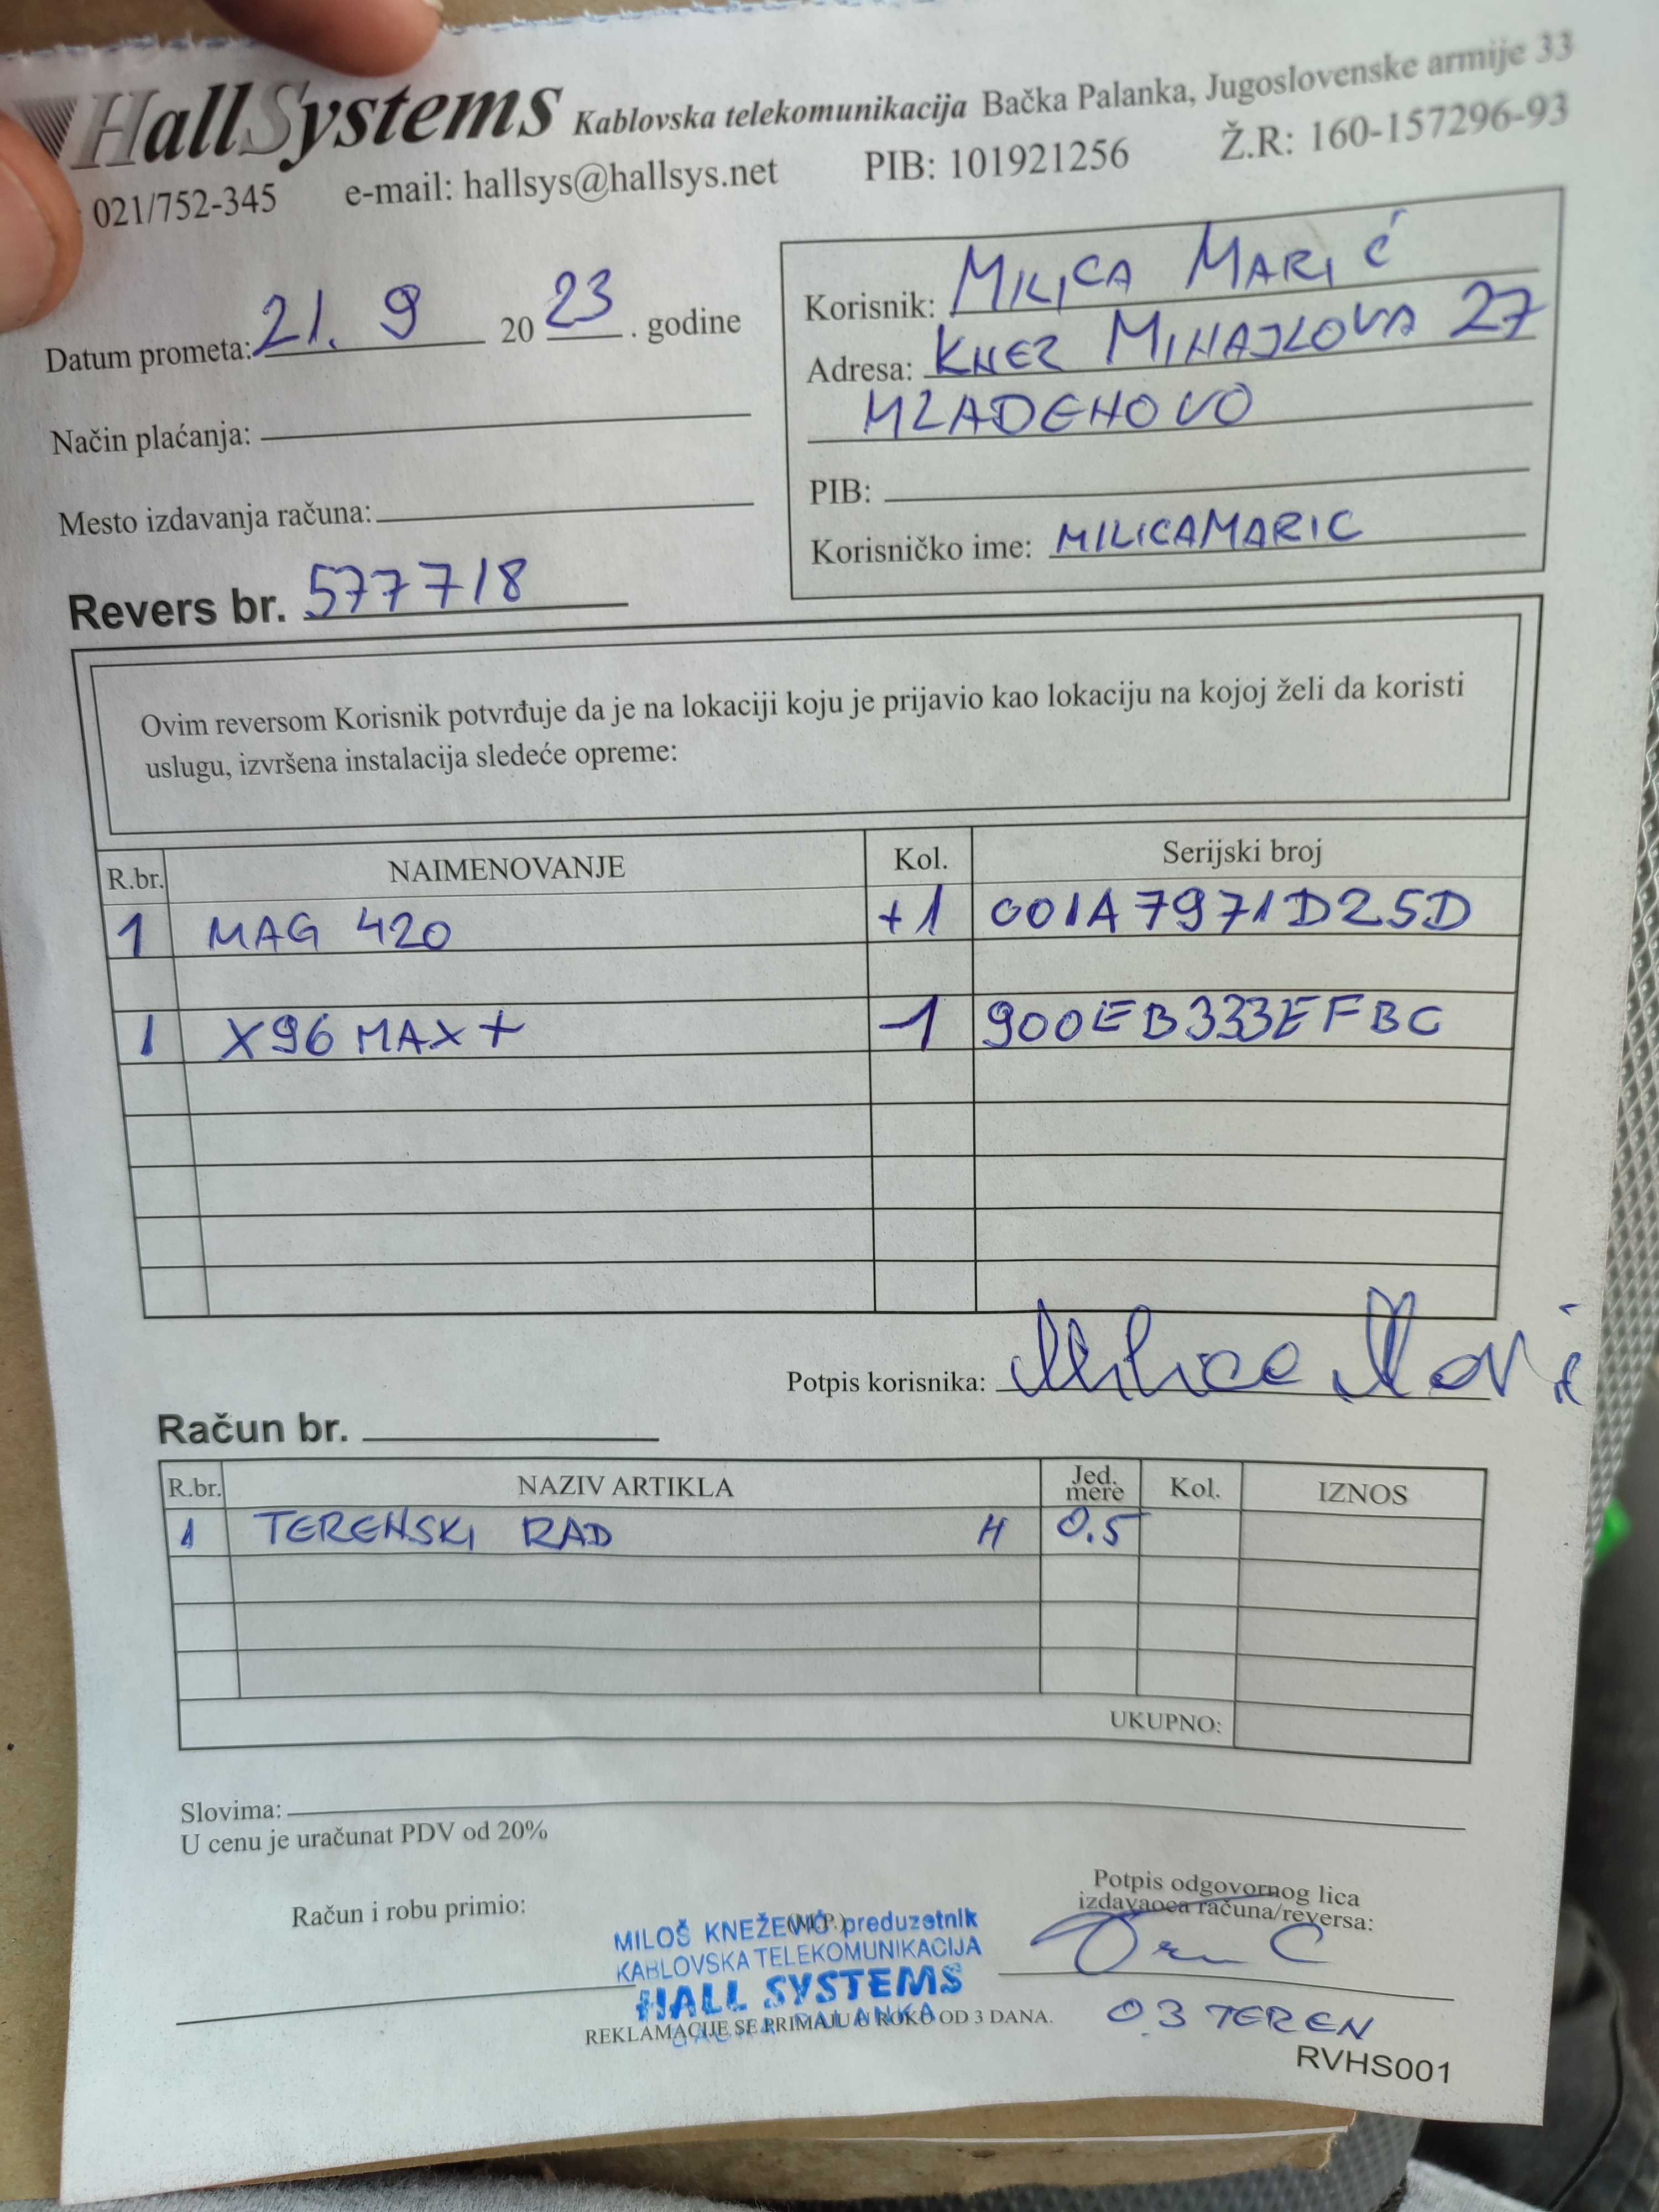 HallSystems Kablovska telekomunikacija Bačka Palanka, Jugoslovenske armije 33
021/752-345 e-mail: hallsys@hallsys.net PIB: 101921256 Ž.R: 160-157296-93
Datum prometa: 21. 9 2023. godine
Način plaćanja:
Mesto izdavanja računa:
Revers br. 577718
Korisnik: MILICA MARIĆ
Adresa: KNEZ MIHAJLOVA 27
MLADENOVO
PIB:
Korisničko ime: MILICAMARIC
Ovim reversom Korisnik potvrđuje da je na lokaciji koju je prijavio kao lokaciju na kojoj želi da koristi
uslugu, izvršena instalacija sledeće opreme:
R.br. NAIMENOVANJE Kol. Serijski broj
1 MAG 420 +1 001A7971D25D
1 X96 MAX+ -1 900EB333EFBC
Potpis korisnika: Milica Mari
Račun br.
R.br. NAZIV ARTIKLA Jed. mere Kol. IZNOS
1 TERENSKI RAD H 0.5
UKUPNO:
Slovima:
U cenu je uračunat PDV od 20%
Račun i robu primio:
(M.P.)
MILOŠ KNEŽEVIĆ preduzetnik
KABLOVSKA TELEKOMUNIKACIJA
HALL SYSTEMS
BAČKA PALANKA
Potpis odgovornog lica
izdavaoca računa/reversa:
REKLAMACIJE SE PRIMAJU U ROKU OD 3 DANA.
03 TEREN
RVHS001